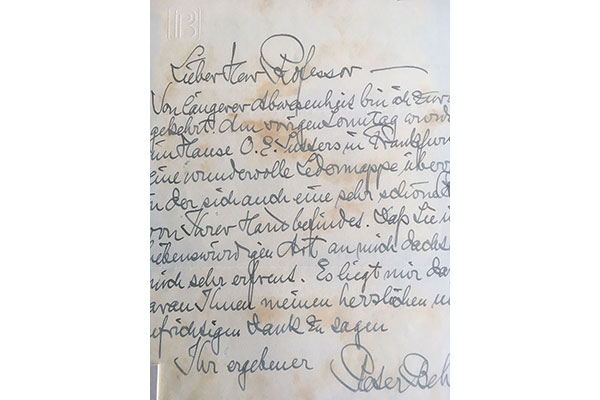 Lieber Herr Professor —
Von längerer Abwesenheit bin ich zurü
gekehrt. Am vorigen Sonntag wurde
im Hause O. E. in Frankfur
eine wundervolle Ledermappe überr
in der sich auch eine sehr schöne
von Ihrer Hand befindet. Daß Sie i
liebenswürdigen Art an mich dacht
mich sehr erfreut. Es liegt mir dar
daran Ihnen meinen herzlichen u
ufrichtigen Dank zu sagen
Ihr ergebener
Peter Beh